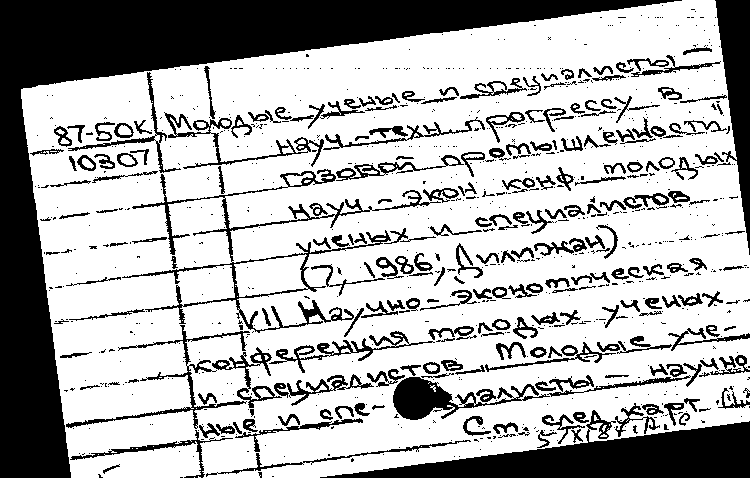 87-50К „Молодые ученые и специалисты –
10307 науч.-техн. прогрессу в
газовой промышленности",
науч.-экон. конф. молодых
ученых и специалистов
(7; 1986; Дилижан).
VII Научно-экономическая
конференция молодых ученых
и специалистов „Молодые уче-
ные и спе- циалисты – научно
См. след. карт.